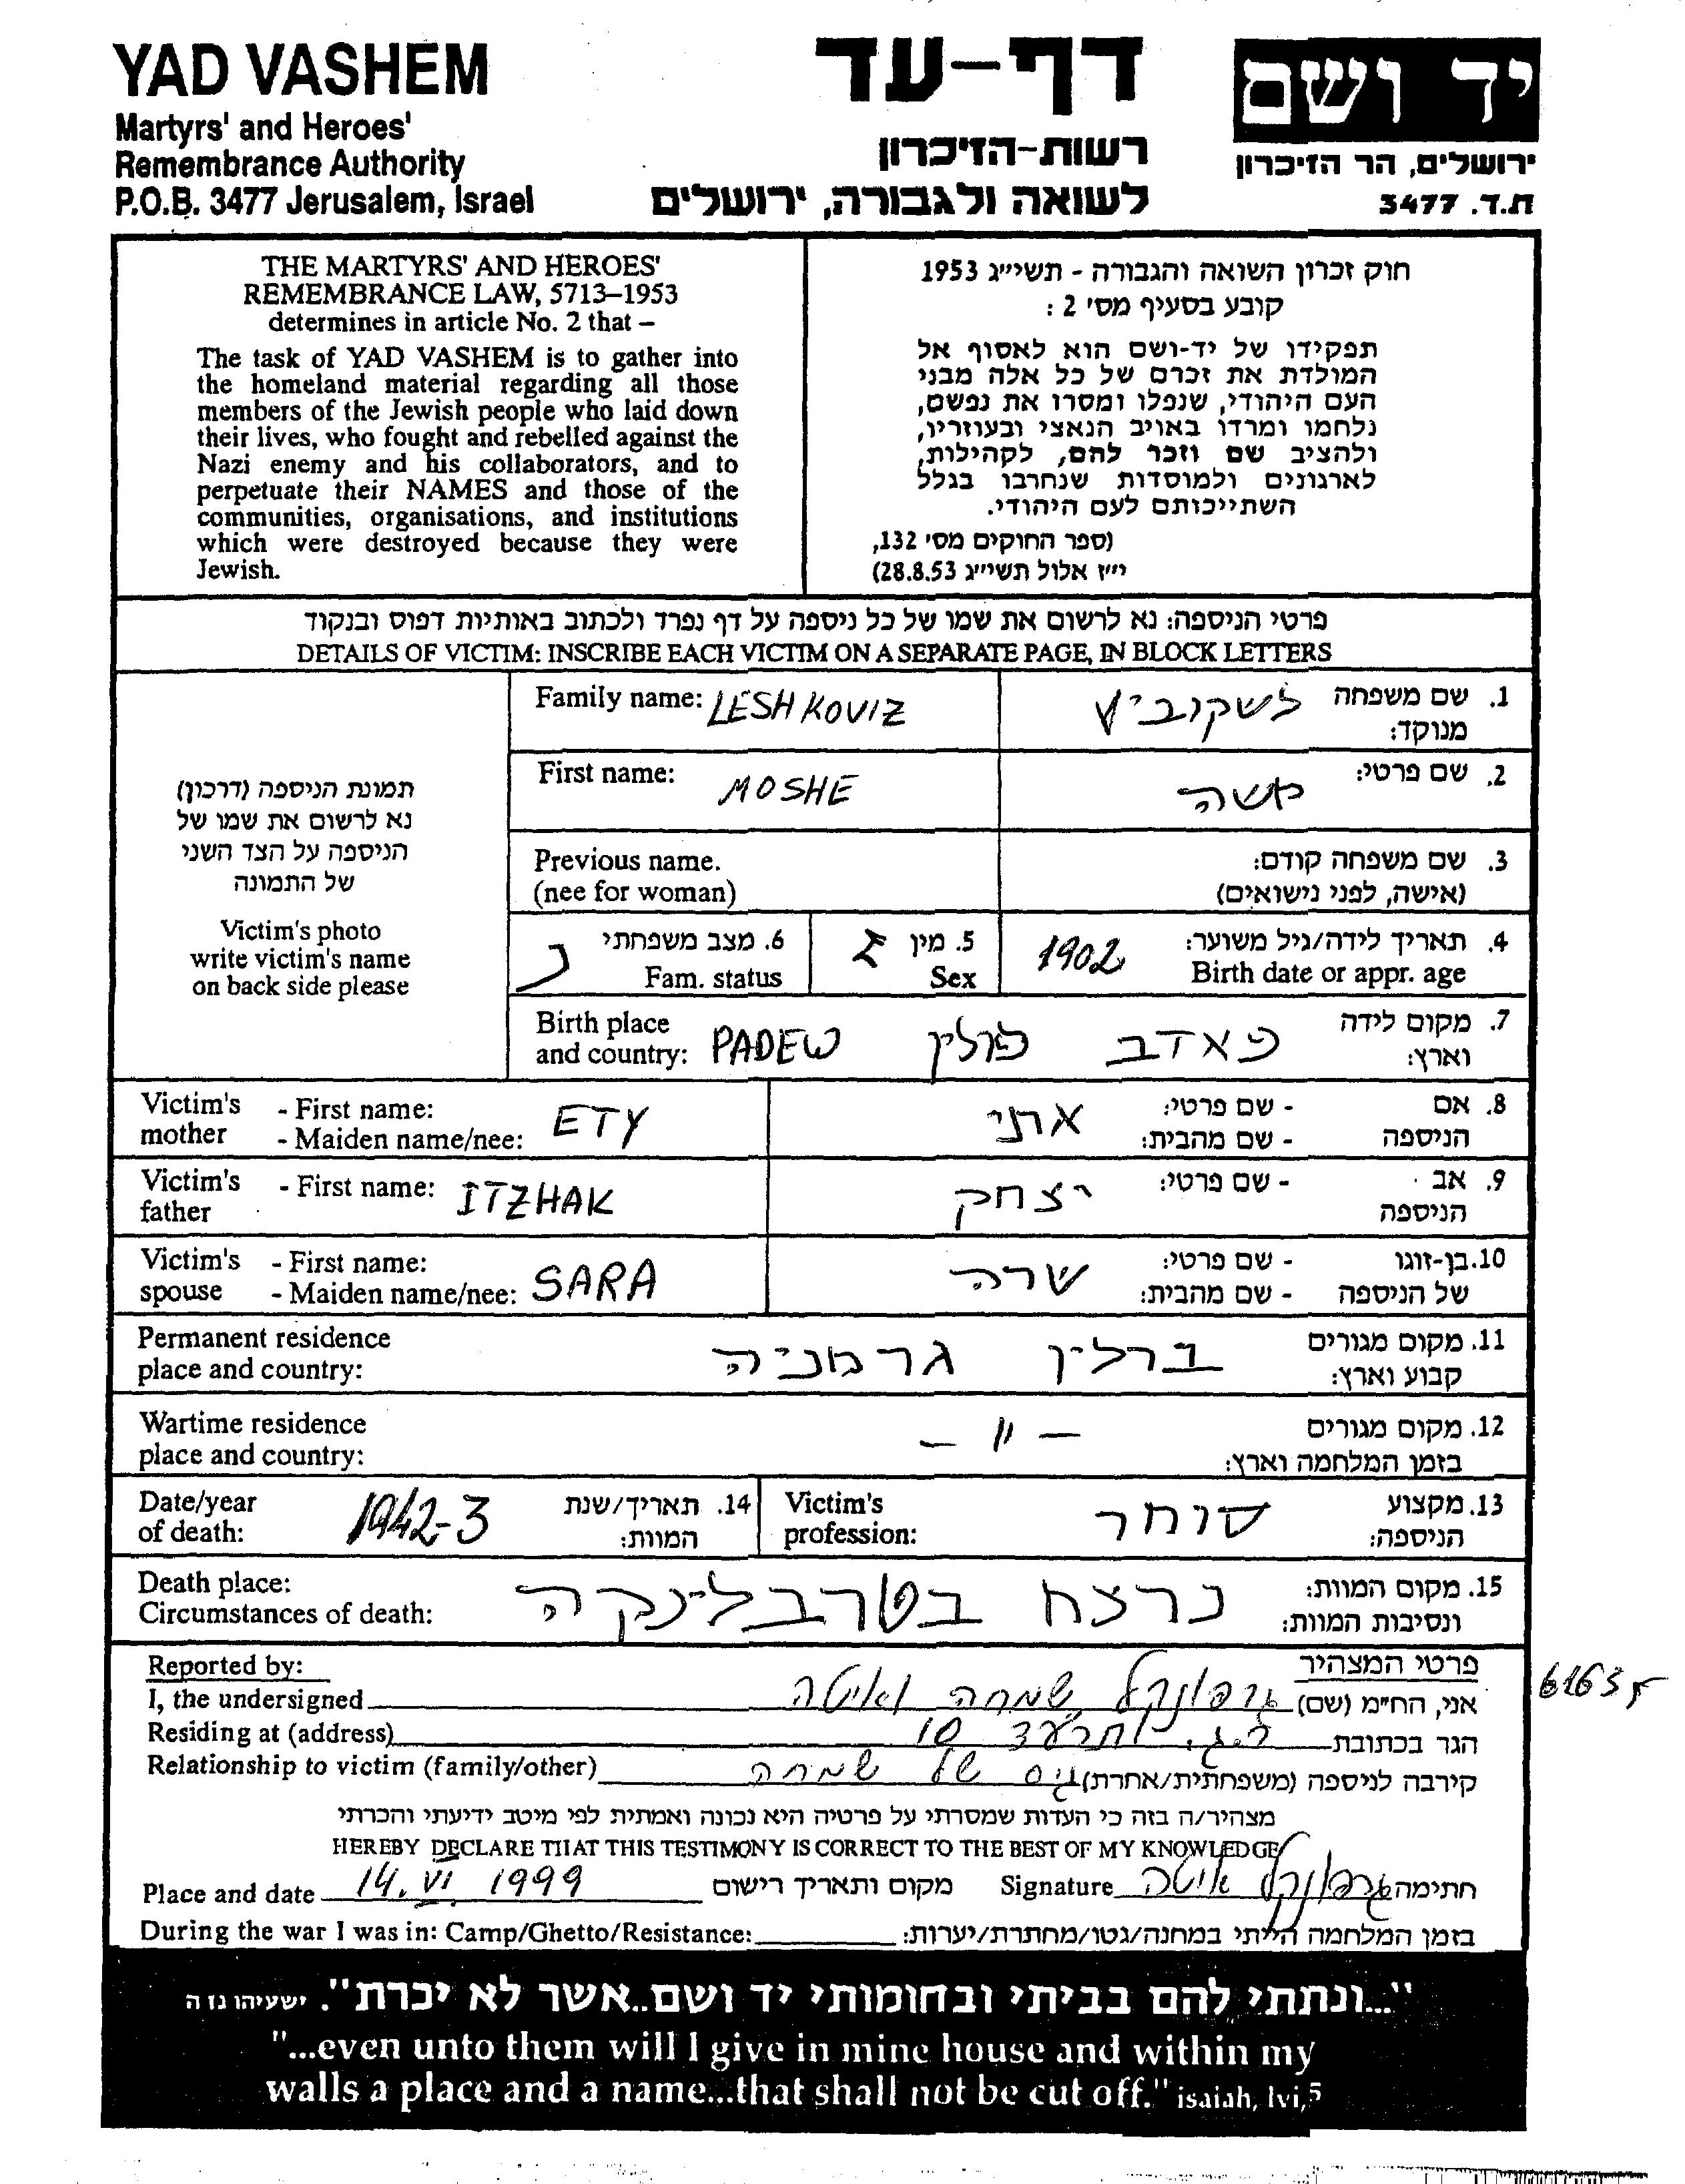 YAD VASHEM
Martyrs' and Heroes'
Remembrance Authority
P.O.B. 3477 Jerusalem, Israel
דף-עד
רשות-הזיכרון
לשואה ולגבורה, ירושלים
יד ושם
ירושלים, הר הזיכרון
ת.ד. 3477
THE MARTYRS' AND HEROES'
REMEMBRANCE LAW, 5713–1953
determines in article No. 2 that –
The task of YAD VASHEM is to gather into
the homeland material regarding all those
members of the Jewish people who laid down
their lives, who fought and rebelled against the
Nazi enemy and his collaborators, and to
perpetuate their NAMES and those of the
communities, organisations, and institutions
which were destroyed because they were
Jewish.
חוק זכרון השואה והגבורה - תשי״ג 1953
קובע בסעיף מס' 2 :
תפקידו של יד-ושם הוא לאסוף אל
המולדת את זכרם של כל אלה מבני
העם היהודי, שנפלו ומסרו את נפשם,
נלחמו ומרדו באויב הנאצי ובעוזריו,
ולהציב שם וזכר להם, לקהילות,
לארגונים ולמוסדות שנחרבו בגלל
השתייכותם לעם היהודי.
(ספר החוקים מס' 132,
י״ז אלול תשי״ג 28.8.53)
פרטי הניספה: נא לרשום את שמו של כל ניספה על דף נפרד ולכתוב באותיות דפוס ובנקוד
DETAILS OF VICTIM: INSCRIBE EACH VICTIM ON A SEPARATE PAGE, IN BLOCK LETTERS
תמונת הניספה (דרכון)
נא לרשום את שמו של
הניספה על הצד השני
של התמונה
Victim's photo
write victim's name
on back side please
Family name: LESHKOVIZ
1. שם משפחה לשקוביץ
מנוקד:
First name: MOSHE
2. שם פרטי: משה
Previous name.
(nee for woman)
3. שם משפחה קודם:
(אישה, לפני נישואים)
4. תאריך לידה/גיל משוער: 1902
Birth date or appr. age
5. מין ז
Sex
6. מצב משפחתי נ
Fam. status
Birth place
and country: PADEW
7. מקום לידה פאדב פולין
וארץ:
Victim's - First name: ETY
mother - Maiden name/nee:
8. אם - שם פרטי: אתי
הניספה - שם מהבית:
Victim's - First name: ITZHAK
father
9. אב - שם פרטי: יצחק
הניספה
Victim's - First name: SARA
spouse - Maiden name/nee:
10. בן-זוגו - שם פרטי: שרה
של הניספה - שם מהבית:
Permanent residence
place and country:
11. מקום מגורים ברלין גרמניה
קבוע וארץ:
Wartime residence
place and country:
12. מקום מגורים - " -
בזמן המלחמה וארץ:
Date/year
of death: 1942-3
14. תאריך/שנת
המוות:
Victim's
profession:
13. מקצוע סוחר
הניספה:
Death place:
Circumstances of death:
15. מקום המוות: נרצח בטרבלינקה
ונסיבות המוות:
Reported by:
פרטי המצהיר
I, the undersigned
אני, הח״מ (שם) גרפונקל שמחה ואיטה
6263
Residing at (address)
הגר בכתובת ר.ג. 10
Relationship to victim (family/other)
קירבה לניספה (משפחתית/אחרת) גיס של שמחה
מצהיר/ה בזה כי העדות שמסרתי על פרטיה היא נכונה ואמתית לפי מיטב ידיעתי והכרתי
HEREBY DECLARE THAT THIS TESTIMONY IS CORRECT TO THE BEST OF MY KNOWLEDGE
Place and date 14. VI 1999 מקום ותאריך רישום
Signature גרפונקל איטה חתימה
During the war I was in: Camp/Ghetto/Resistance:
בזמן המלחמה הייתי במחנה/גטו/מחתרת/יערות:
"...ונתתי להם בביתי ובחומותי יד ושם..אשר לא יכרת". ישעיהו נו ה
"...even unto them will I give in mine house and within my
walls a place and a name...that shall not be cut off." isaiah, lvi,5